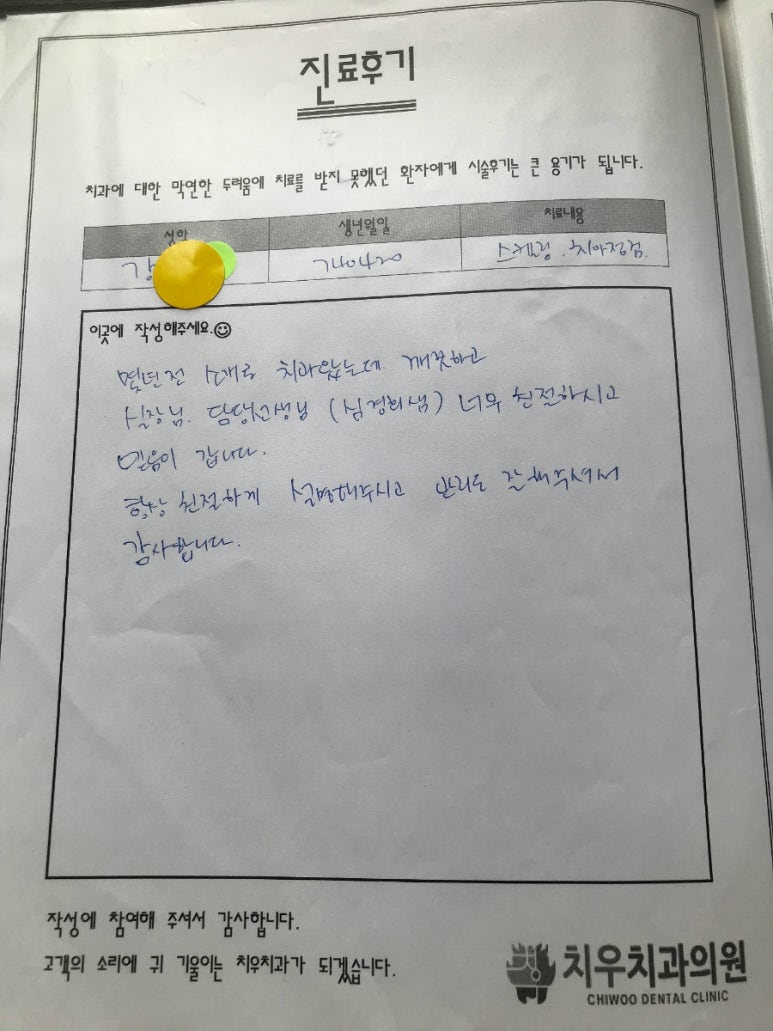 진료후기
치과에 대한 막연한 두려움에 치료를 받지 못했던 환자에게 시술후기는 큰 용기가 됩니다.
성함 생년월일 치료내용
스케일링. 치아점검.
이곳에 작성해주세요.☺
몇년전 소개로 치과왔는데. 깨끗하고
실장님. 담당선생님 (심경희샘) 너무 친절하시고
믿음이 갑니다.
항상 친절하게 설명해주시고 관리도 잘해주셔서
감사합니다.
작성에 참여해 주셔서 감사합니다.
고객의 소리에 귀 기울이는 치우치과가 되겠습니다.
치우치과의원
CHIWOO DENTAL CLINIC